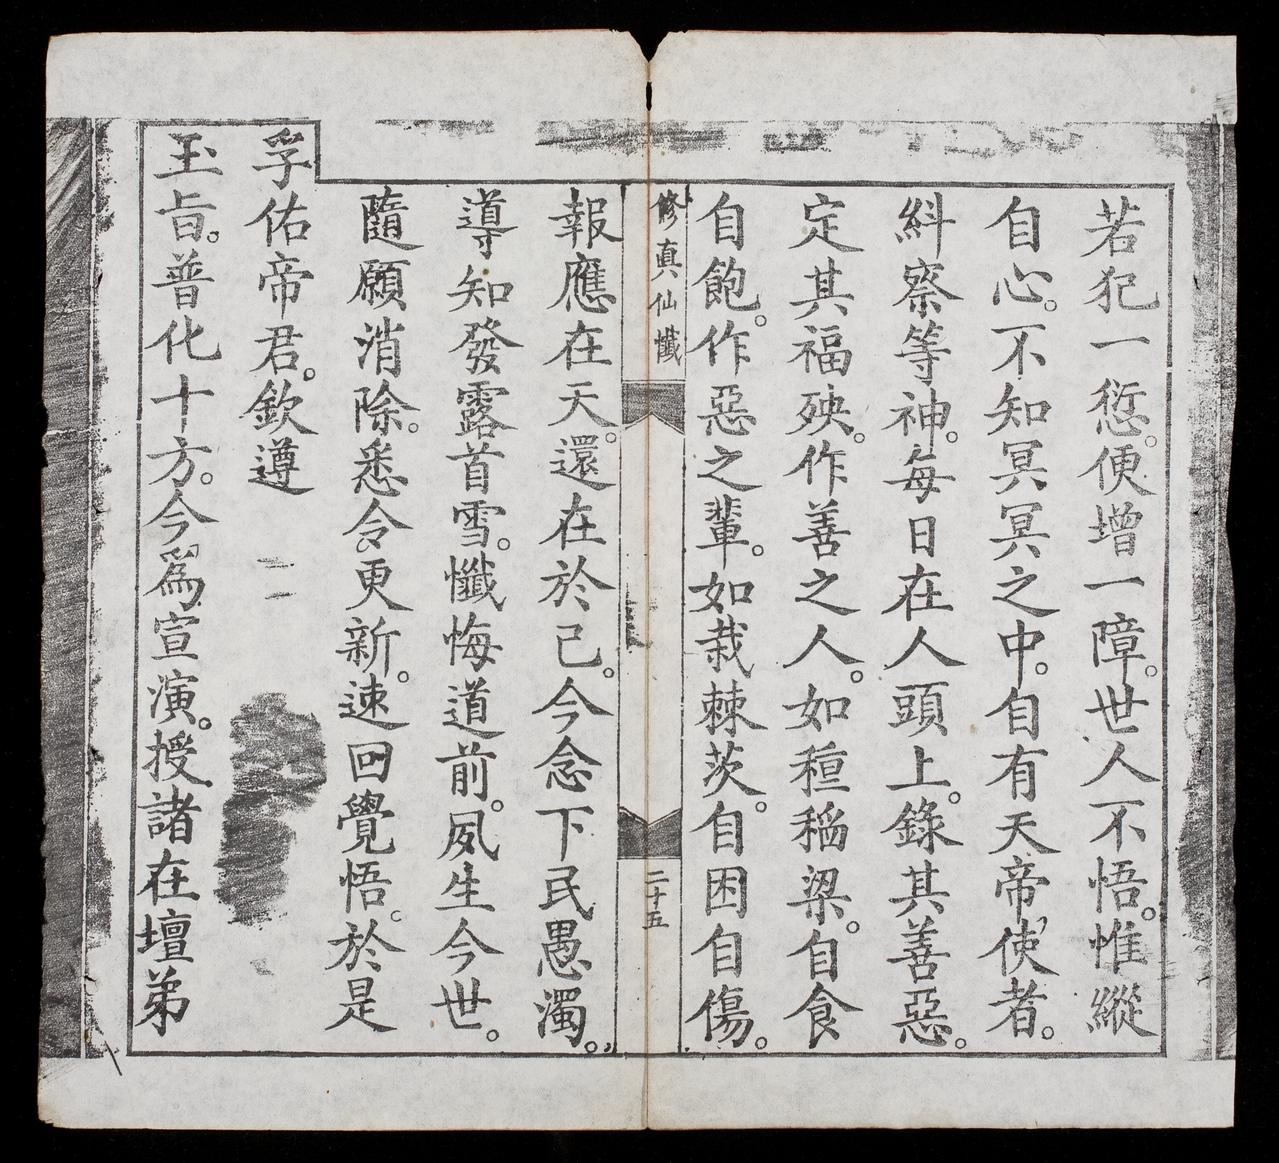 若犯一愆。便增一障。世人不悟。惟縱
自心。不知冥冥之中。自有天帝使者。
糾察等神。每日在人頭上。錄其善惡。
定其福殃。作善之人。如種稻粱。自食
自飽。作惡之輩。如栽棘茨。自困自傷。
修真仙懺
二十五
報應在天。還在於己。今念下民愚濁。
導知發露首雪。懺悔道前。夙生今世。
隨願消除。悉令更新。速回覺悟。於是
孚佑帝君。欽遵
玉旨。普化十方。今爲宣演。授諸在壇弟